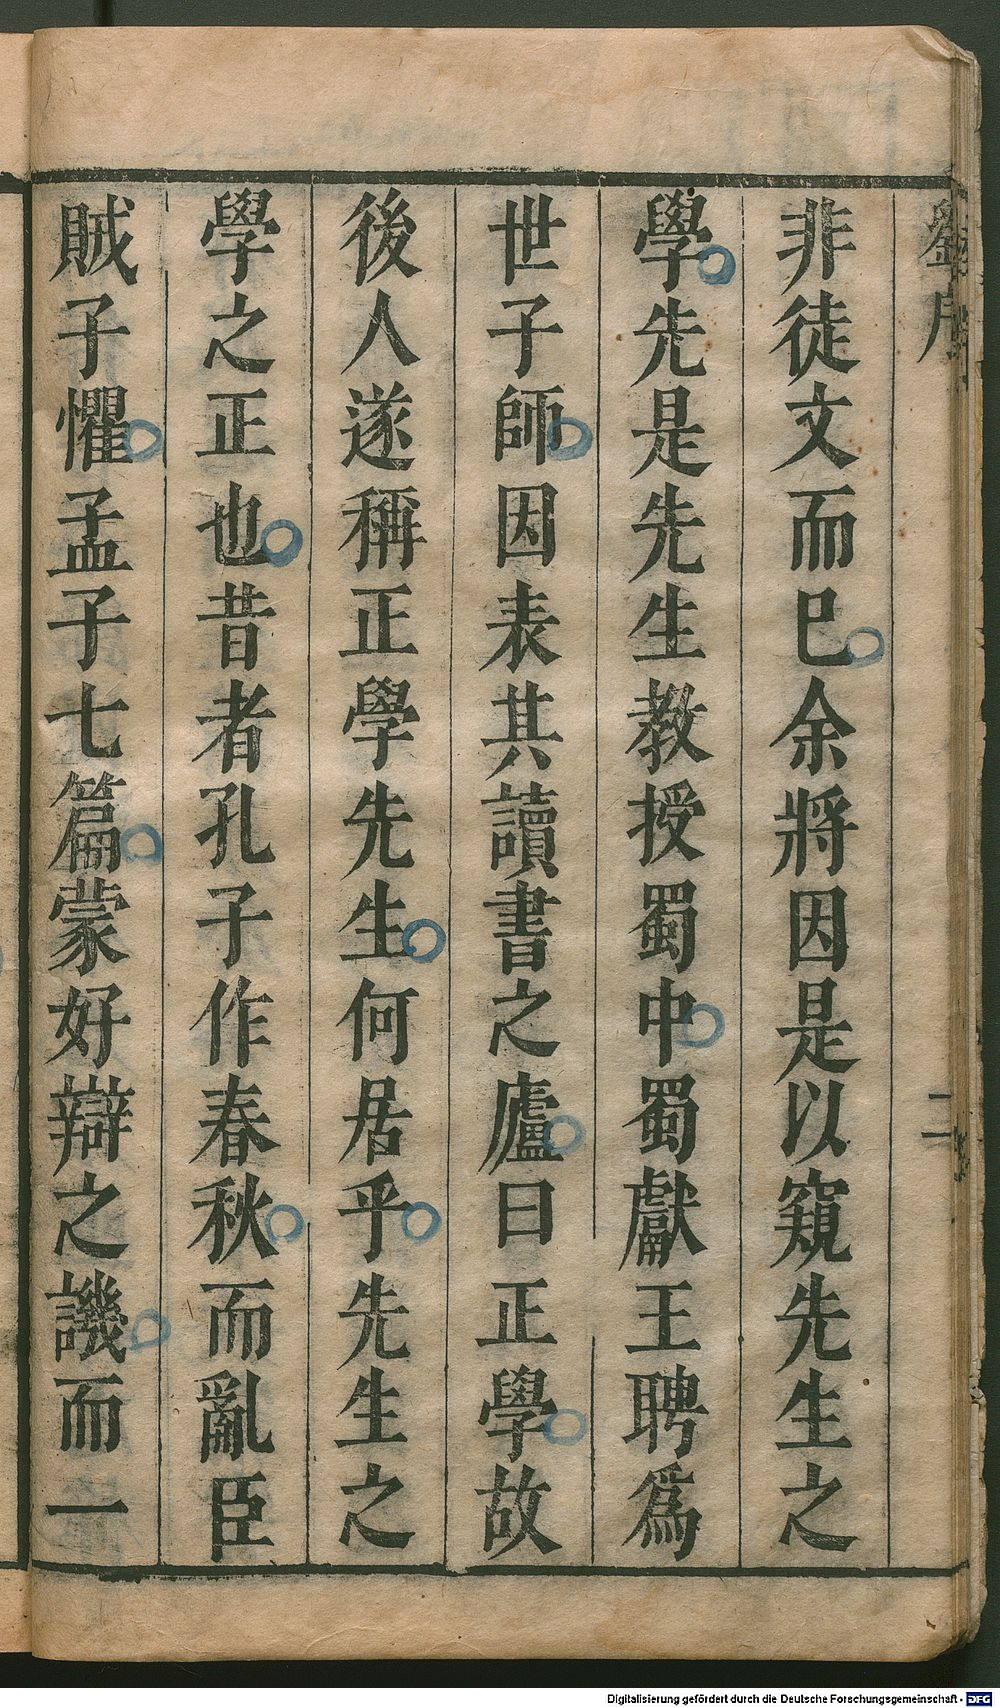 非徒文而已余將因是以窺先生之
學先是先生教授蜀中蜀獻王聘爲
世子師因表其讀書之廬曰正學故
後人遂稱正學先生何居乎先生之
學之正也昔者孔子作春秋而亂臣
賊子懼孟子七篇蒙好辯之譏而一
二
Digitalisierung gefördert durch die Deutsche Forschungsgemeinschaft - DFG